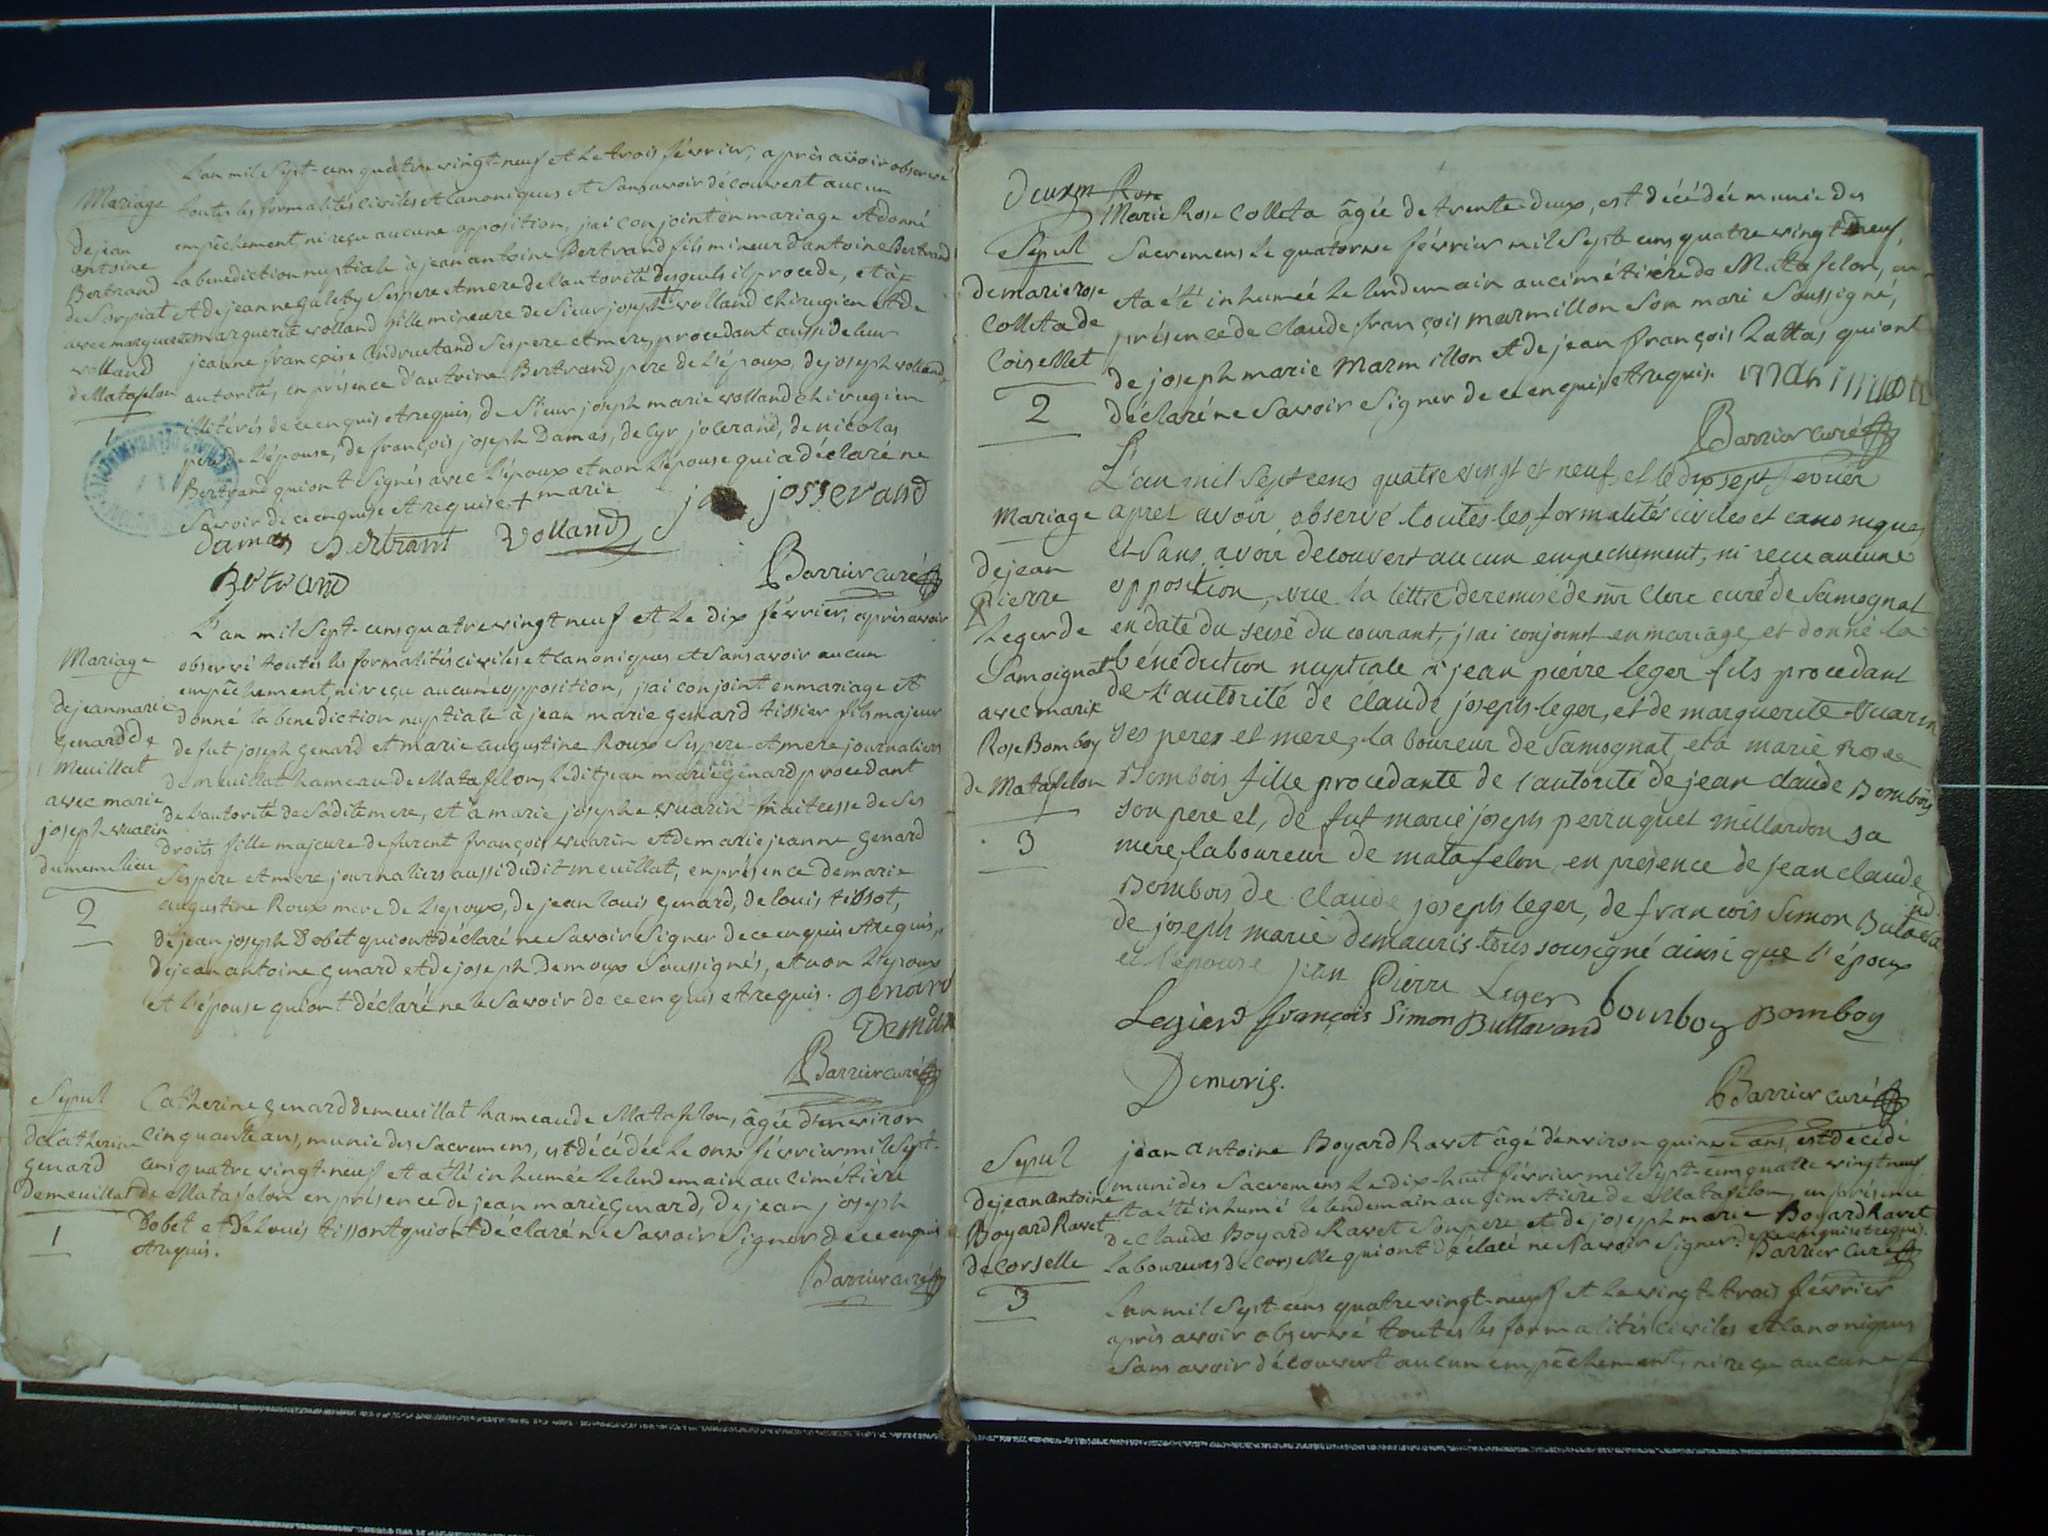 L'an mil Sept-cens quatre vingt-neuf et le trois février, après avoir observé
Mariage
toutes les formalités civiles et canoniques et sans avoir découvert aucun
empêchement, ni reçu aucune opposition, j'ai conjoint en mariage et donné
de jean
antoine
Bertrand
la benediction nuptiale à jean antoine Bertrand fils mineur d'antoine Bertrand
et de jeanne galety ses pere et mere de l'autorité desquels il procede, et à
avec marguerite
marguerite volland fille mineure de Sieur joseph volland chirugien et de
volland
jeanne françoise ses pere et mere, procedant aussi de leur
de Matafelon
autorité, en présence d'antoine Bertrand pere de l'époux, de joseph volland,
1
illitérés de ce enquis et requis, de Sieur joseph marie volland chirugien
pere de l'épouse, de françois joseph Damas, de Cyr jocerand, de nicolas
Bertrand qui ont signés avec l'époux et non l'épouse qui a déclaré ne
savoir de ce enquise et requise + marie
damas Bertrant Volland josserand
Bertrand
Barrier curé
L'an mil Sept-cens quatre vingt neuf et le dix février, après avoir
Mariage
observé toutes les formalités civiles et canoniques et sans avoir aucun
empêchement, ni reçu aucune opposition, j'ai conjoint en mariage et
de jean marie
donné la benediction nuptiale à jean marie genard tissier fils majeur
genard de
de fut joseph genard et marie augustine Roux ses pere et mere journaliers
Meuillat
de meuillat hameau de Matafelon, ledit jean marie genard procedant
avec marie
de l'autorité de sadite mere, et à marie josephe vuarin maitresse de ses
joseph vuarin
droits fille majeure de furent françois vuarin et de marie jeanne genard
du meme lieu
ses pere et mere journaliers aussi dudit meuillat, en présence de marie
2
augustine Roux mere de l'epoux, de jean louis genard, de louis tissot,
de jean joseph Bobet qui ont déclaré ne savoir signer de ce enquis et requis,
de jean antoine genard et de joseph Demoux soussignés, et non l'époux
et l'épouse qui ont déclaré ne le savoir de ce enquis et requis. genard
Barrier curé
Sepul
Catherine genard de meuillat hameau de Matafelon, âgée d'environ
de Catherine
cinquante ans, munie des sacremens, est décédée le onze février mil Sept-
genard
cens quatre vingt-neuf et a été inhumée le lendemain au cimétiére
de meuillat
de Matafelon en présence de jean marie genard, de jean joseph
1
Bobet et de louis tissot qui ont déclaré ne savoir signer de ce enquis
et requis.
Barrier curé
Marie Rose Colleta âgée de trente-deux, est décédée munie des
Sepul
sacremens le quatorze février mil Sept cens quatre vingt neuf,
de marie rose
et a été inhumée le lendemain au cimétiére de Matafelon, en
Colleta de
présence de Claude françois marmillon son mari soussigné,
Coisellet
de joseph marie Marmillon et de jean françois qui ont
2
déclaré ne savoir signer de ce enquis et requis.
Barrier curé
L'an mil sept cens quatre vingt et neuf et le dix sept fevrier
Mariage
apres avoir observé toutes les formalités civiles et canoniques
et sans avoir decouvert aucun empechement, ni recu aucune
de jean
Pierre
opposition, vue la lettre de remise de mr Clerc curé de Samognat
Leger de
en date du seise du courant, j'ai conjoint en mariage et donné la
Samoignat
bénédiction nuptiale à jean pierre leger fils procedant
avec marie
de l'autorité de claude joseph leger, et de marguerite Vuarin
Rose Bomboy
ses peres et mere, laboureur de Samognat, et à marie Rose
de Matafelon
Bombois fille procedante de l'autorité de jean claude Bombois
3
son pere et, de fut marie joseph perruquet millardon sa
mere, laboureur de matafelon, en presence de jean claude
Bombois de Claude joseph leger, de francois Simon
de joseph marie demauris tous sousigné ainsi que l'époux
et l'épouse jean Pierre Leger
Legierd françois Simon Bullavand bomboy Bomboy
Demoris.
Barrier curé
Sepul
jean antoine Boyard Ravet âgé d'environ quinze ans, est décédé
muni des sacremens le dix-huit février mil Sept-cens quatre vingt neuf
de jean antoine
et a été inhumé le lendemain au cimetiere de Matafelon, en présence
Boyard Ravet
de Claude Boyard Ravet son pere et de joseph marie Boyard Ravet
de Corselle
laboureurs de corselle qui ont déclaré ne savoir signer de ce enquis et requis.
Barrier curé
3
L'an mil Sept-cens quatre vingt-neuf et le vingt-trois février
après avoir observé toutes les formalités civiles et canoniques
sans avoir découvert aucun empêchement, ni reçu aucune